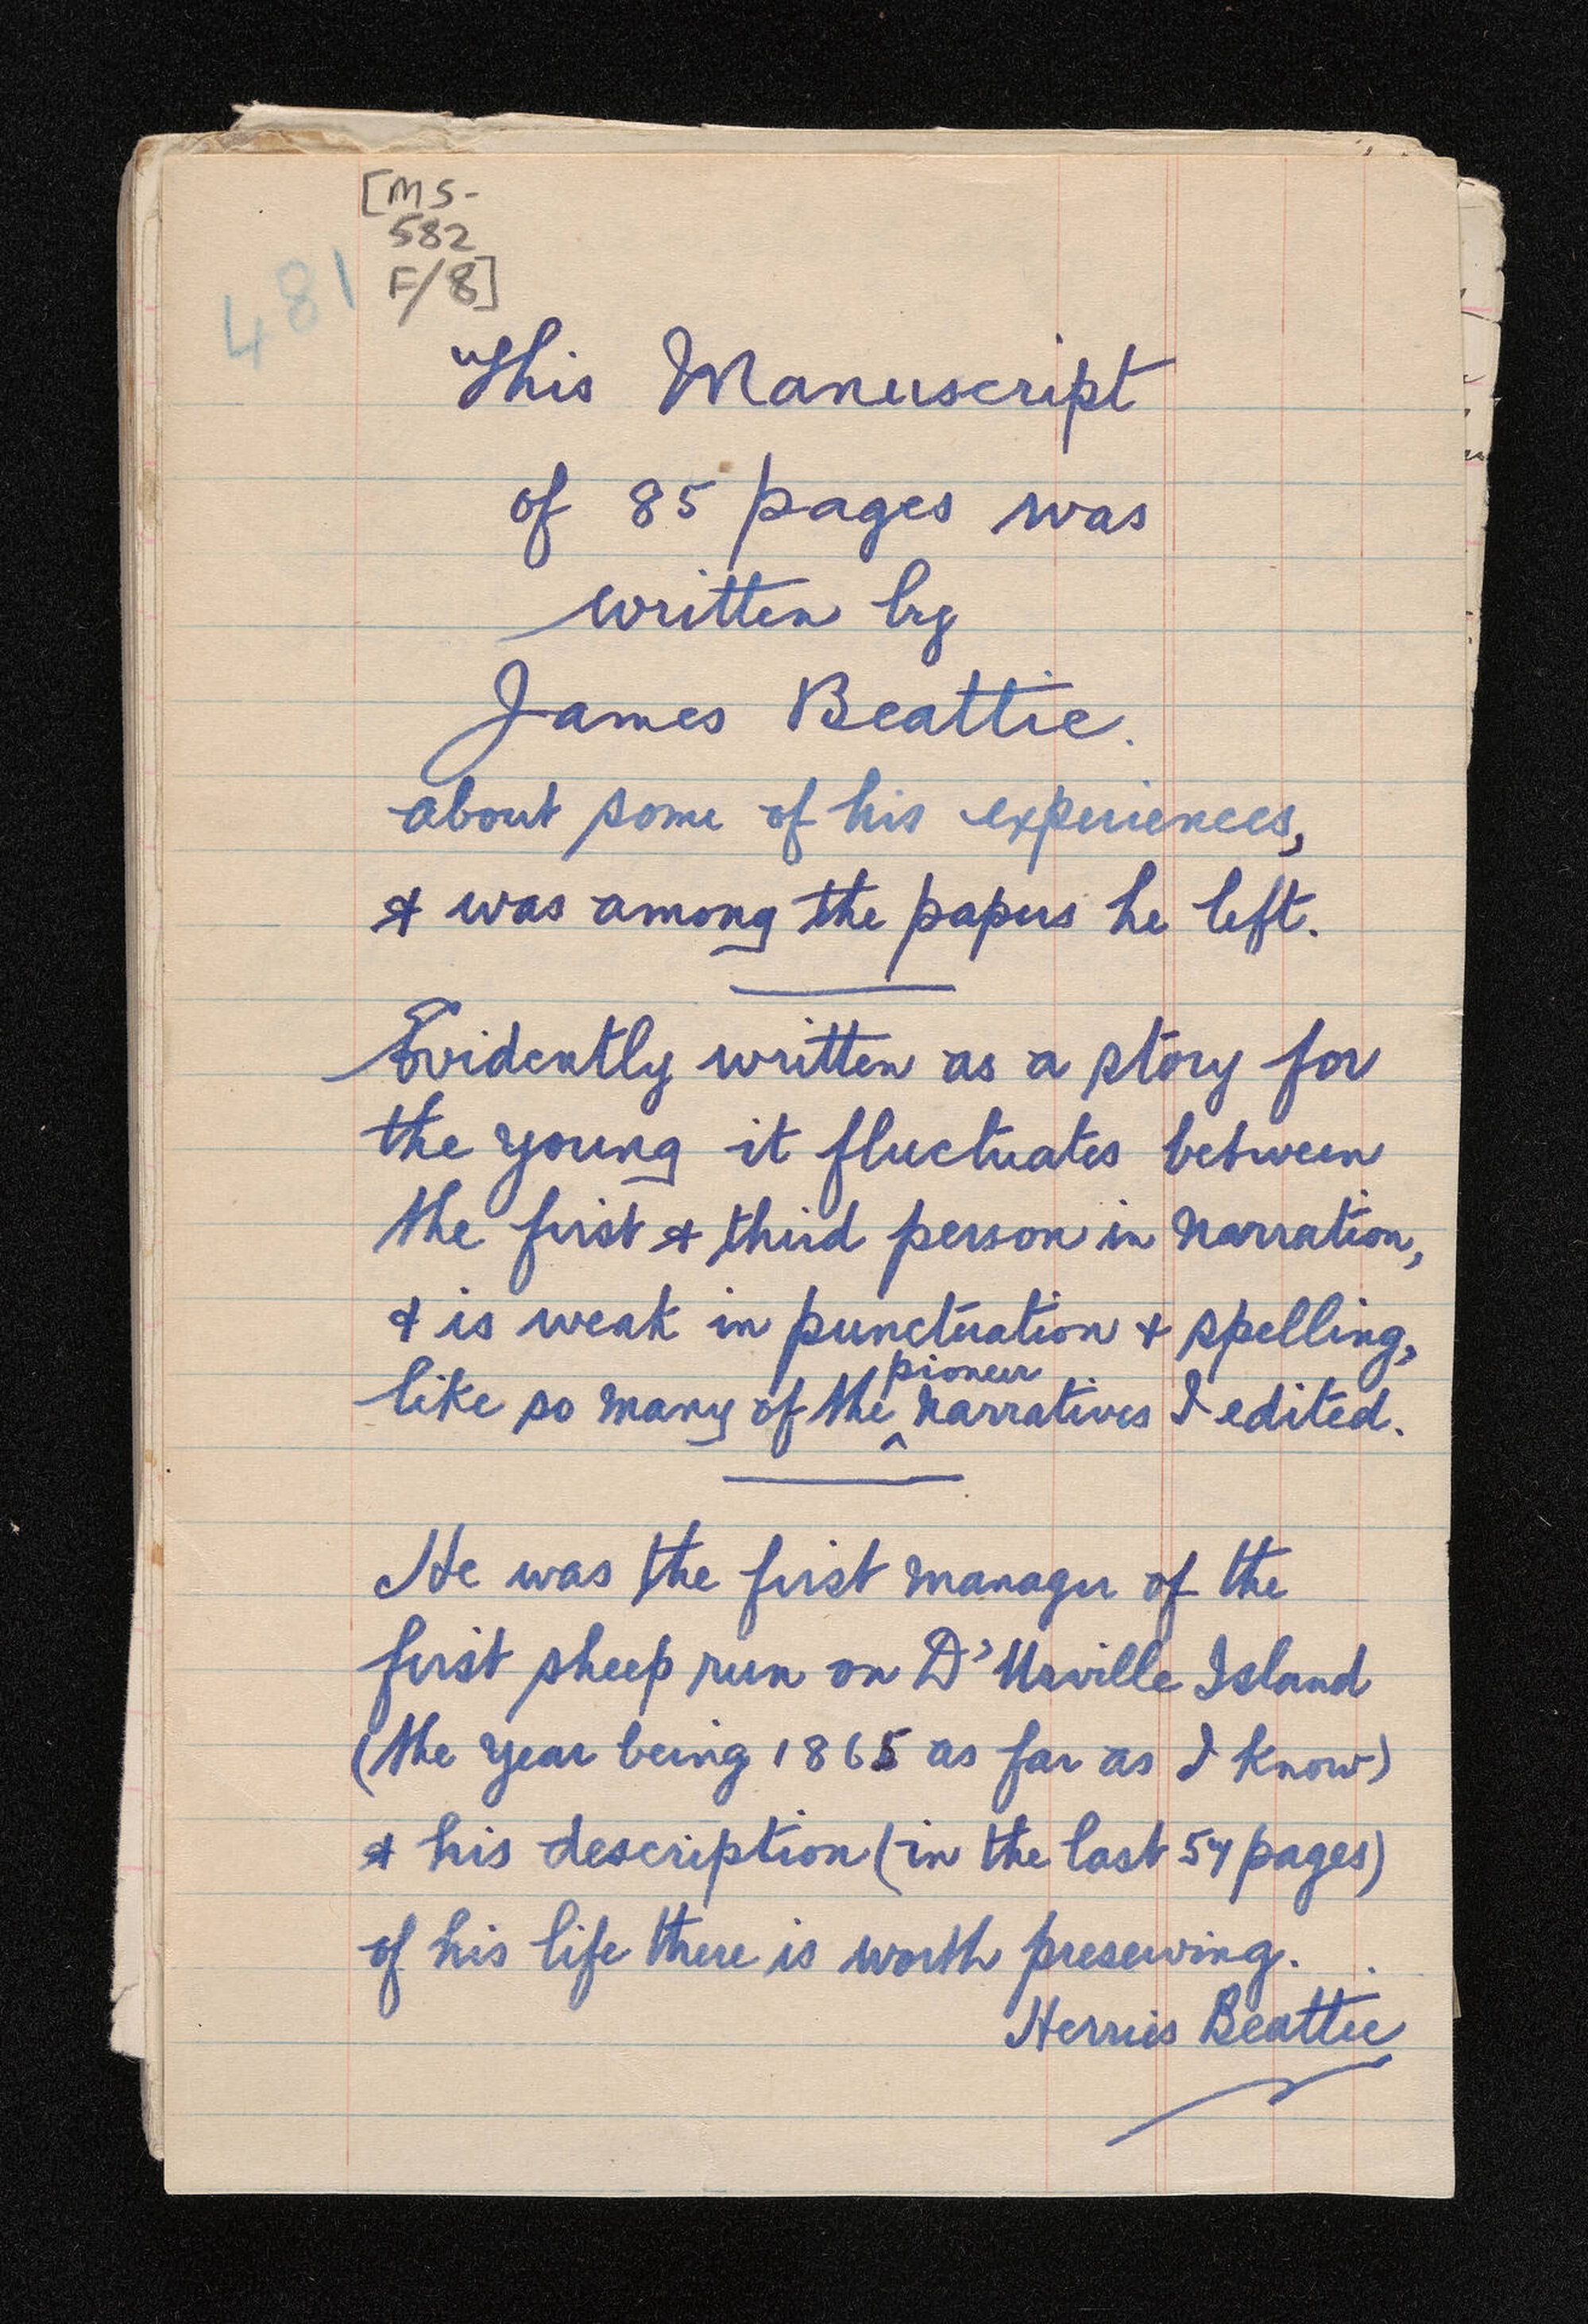 [MS-
582
F/8]
481
This Manuscript
of 85 pages was
written by
James Beattie.
about some of his experiences,
& was among the papers he left.
Evidently written as a story for
the young it fluctuates between
the first & third person in narration,
& is weak in punctuation & spelling,
pioneer
like so many of the ^ narratives I edited.
He was the first manager of the
first sheep run on D'Urville Island
(the year being 1865 as far as I know)
& his description (in the last 54 pages)
of his life there is worth preserving.
Herries Beattie